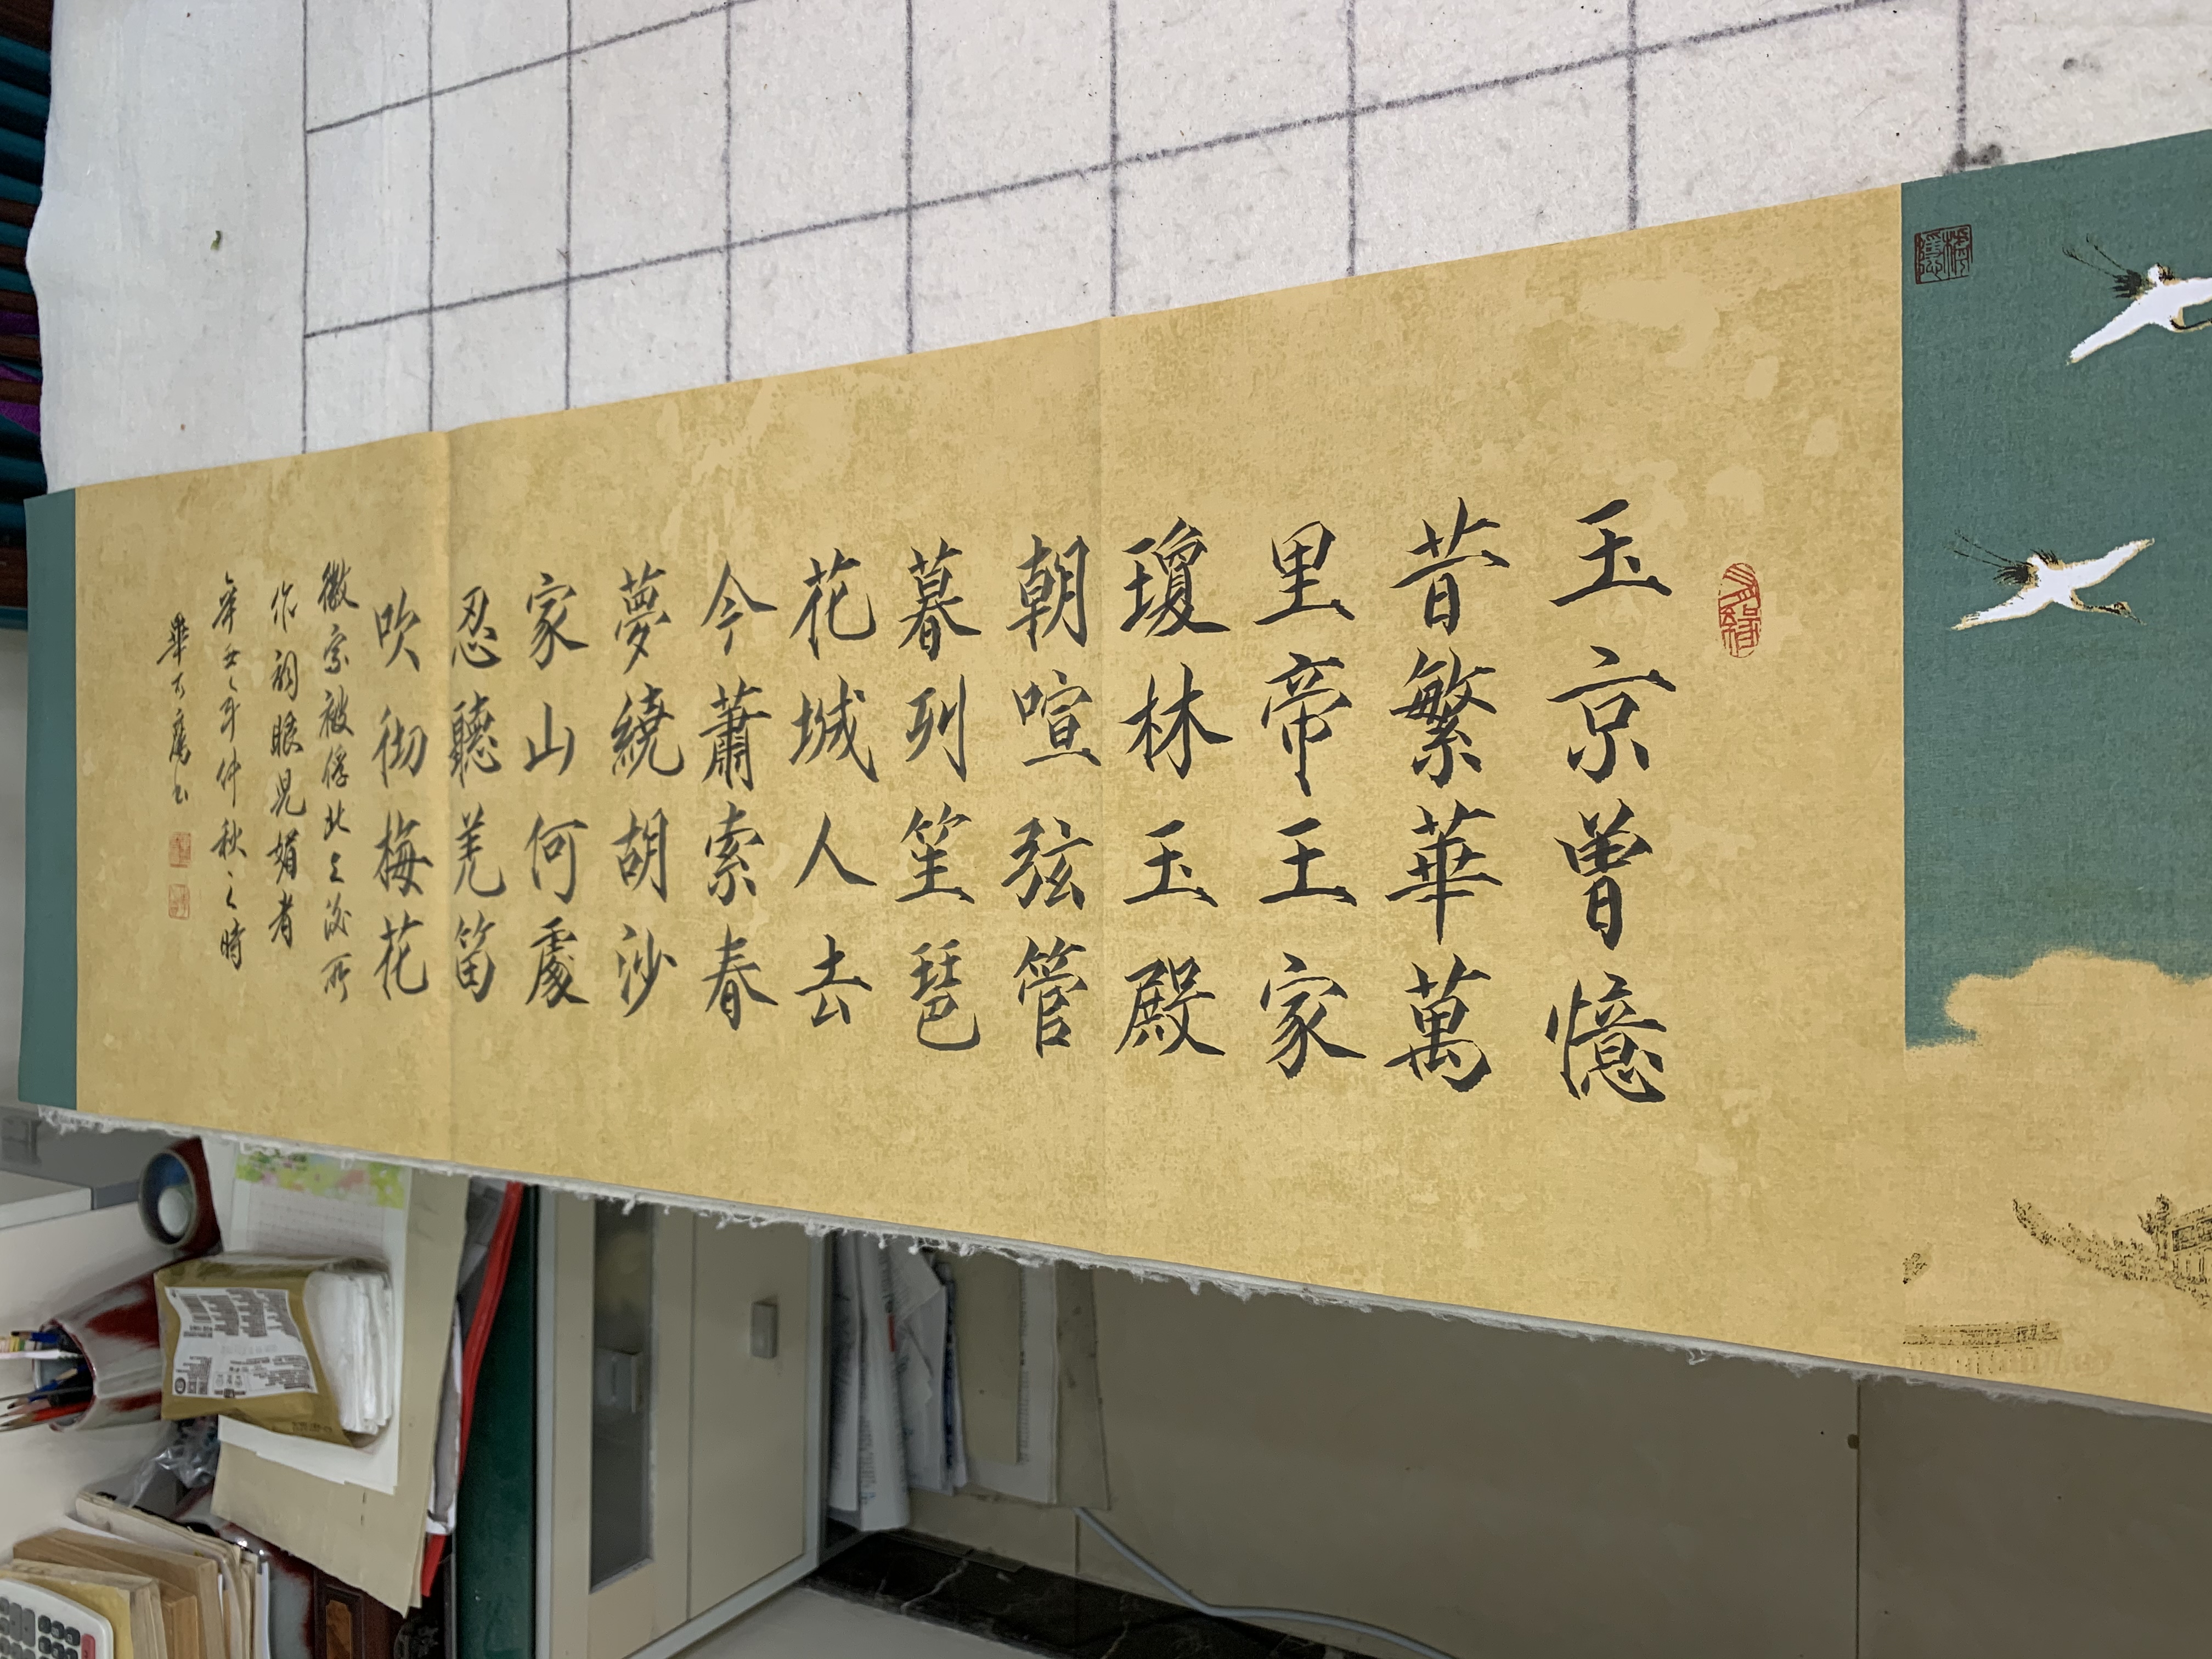 玉京曾憶
昔繁華萬
里帝王家
瓊林玉殿
朝喧弦管
暮列笙琶
花城人去
今蕭索春
夢繞胡沙
家山何處
忍聽羌笛
吹彻梅花
徽宗被俘北上後所
作詞
辛丑年仲秋之時